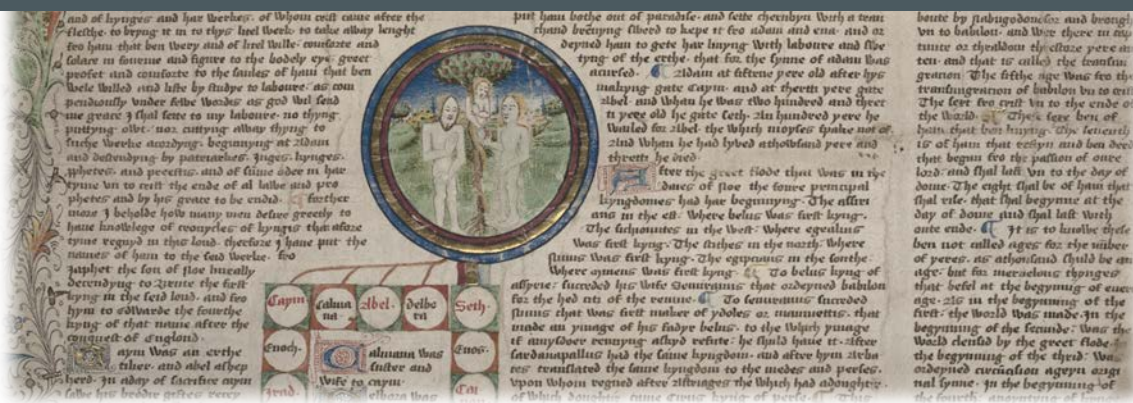 and of kynges and har werkes, of whom crist came after the
flesche, to bryng it in to thys litel werk, to take away lenght
fro ham that ben wery and of litel wille, conforte and
solace in fourme and figure to the bodely eye, greet
profet and conforte to the saules of ham that ben
wele willed and liste by studye to laboure, as com
pendiously vnder fewe wordas as god wil send
me grace I shal sette to my laboure, no thyng
puttyng owt, nor cuttyng away thyng to
suche werke acordyng, begynnyng at Adam
and descendyng by patriarkes, Juges, kynges,
pphetes, and prestis, and of sume oder in har
tyme vn to crist the ende of al lawe and pro
phetes and by his grace to be endid. further
more I beholde how many men desire greetly to
haue knowlege of cronycles of kyngis that afore
tyme regnyd in this lond, therfore I haue put the
names of ham to the seid werke, fro
Japhet the son of Noe lineally
decendyng to Brute the first
kyng in the seid lond, and fro
hym to Edwarde the fourthe
kyng of that name after the
conquest of England.
Caym was an erthe
tilier, and abel a shep
herd. In a day of sacrifice caym
Caym
Calma
na
Abel
delbo
ra
Seth
Enoch
Enos
Irad
Cai
nan
Calmana was
suster and
wife to caym
delbora was
put ham bothe out of paradise, and sette cherubyn with a
hand brennyng swerd to kepe it fro adam and eua, and or
deyned ham to gete har liuyng with laboure and swe
tyng of the erthe, that for the synne of adam was
acursed. Adam at fiftene yere old after hys
makyng gate Caym, and at thretti yere gate
Abel, and whan he was two hundred and thret
ti yere old he gate Seth. An hundred yere he
wailed for Abel, the which moyses spake not of
And whan he had lyved a thowsand yere and
thretti he died
After the greet flode that was in the
daies of Noe the foure principal
kyngdomes had har begynnyng. The assiri
ans in the est, where belus was first kyng.
The sichionites in the west, where egealius
was first kyng. The sithes in the north, where
was first kyng. The egipcians in the southe,
where was first kyng. To belus kyng of
assyrie, succeded his wife Semiramis that ordeyned babilon
for the hed of the reume. To semiramis succeded
Ninus that was first maker of ydoles or maumettis, that
made an ymage of his fadyr belus, to the which ymage
if any rennyng askyd refute, he shuld haue it. After
Sardanapallus had the same kyngdom, and after hym Arba
ces translated the same kyngdom to the medes and perses.
vpon whom regned after Astriages the which had a doughter
of which doughter came Cirus kyng of perse. This
boute by Nabugodonosor and brough
vn to babilon, and wer there in
or thraldom thes score yere an
ten, and that is called the transmi
gracion. The fifthe age was fro the
transmigracion of babilon vn to crist
The sext fro crist vn to the ende of
the world. The sext ben of
ham that ben liuyng. The seuenth
is of ham that resten and ben deed
that began fro the passion of oure
lord, and shal last vn to the day of
dome. The eight shal be of ham that
shal rise, that shal begynne at the
day of dome, and shal last with
oute ende. It is to knowe these
ben not called ages for the number
of yeres, as a thousand shuld be an
age, but for merueilous thynges
that befel at the begynnyg of euery
age. As in the begynnyng of the
first, the world was made. In the
begynnyng of the secunde, was the
world clensed by the greet flode. In
the begynnyng of the thrid, was
ordeyned circumcision ageyn origi
nal synne. In the begynnyng of